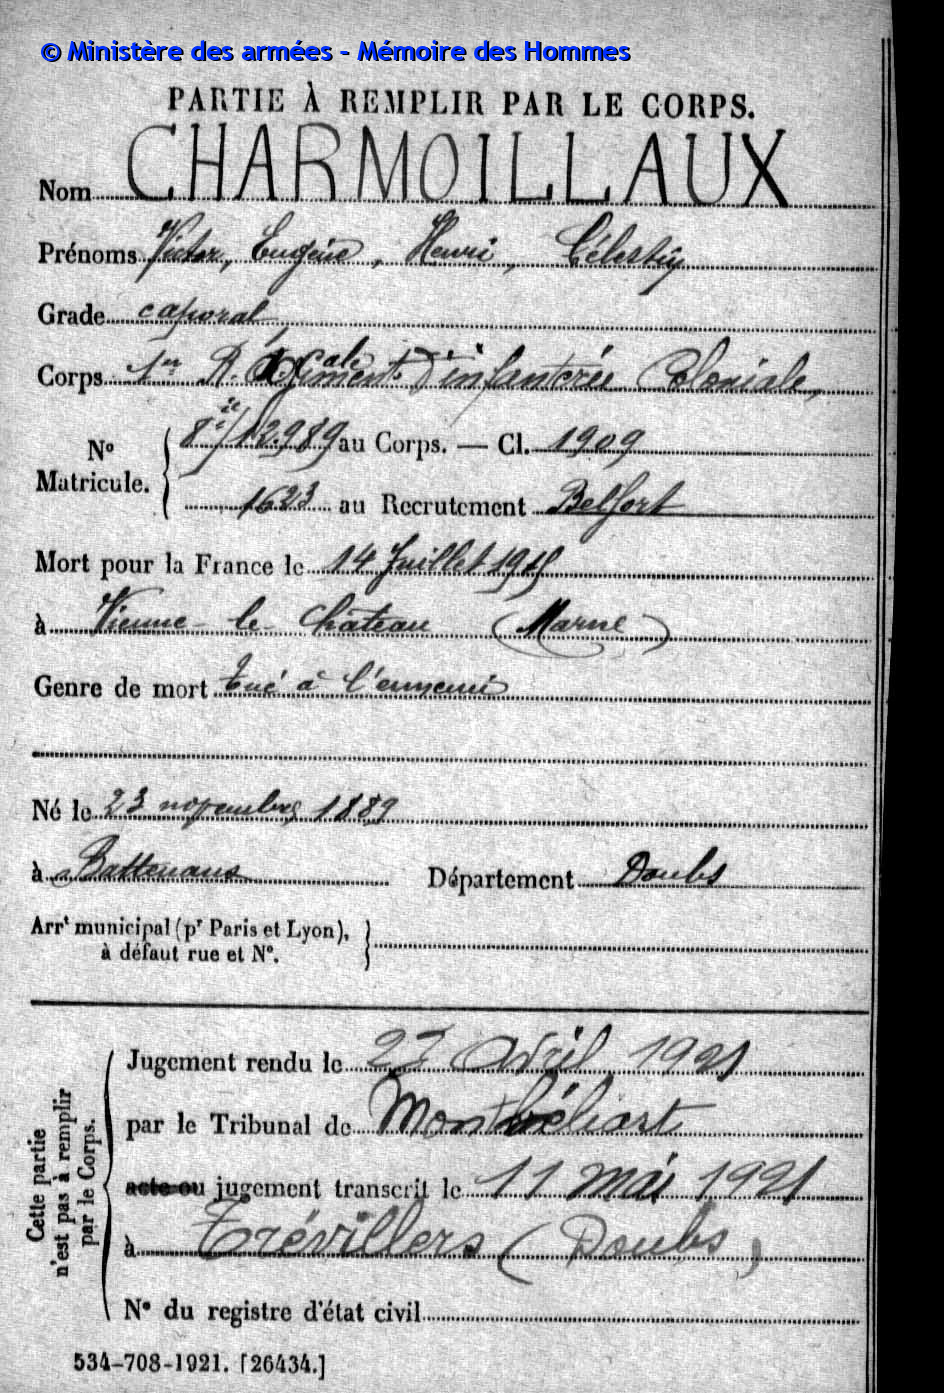 © Ministère des armées - Mémoire des Hommes
PARTIE À REMPLIR PAR LE CORPS.
Nom CHARMOILLAUX
Prénoms Victor, Eugène, Henri, Célestin
Grade caporal
Corps 1er R. d'Infanterie Coloniale
8ie/12.989 au Corps. — Cl. 1909
N° Matricule.
1623 au Recrutement Belfort
Mort pour la France le 14 Juillet 1915
à Vienne-le-Château (Marne)
Genre de mort Tué à l'ennemi
Né le 23 novembre 1889
à Battenans Département Doubs
Arrt municipal (pr Paris et Lyon),
à défaut rue et N°.
Cette partie
n'est pas à remplir
par le Corps.
Jugement rendu le 22 Avril 1921
par le Tribunal de Montbéliart
acte ou jugement transcrit le 11 Mai 1921
à Trévillers (Doubs)
N° du registre d'état civil
534-708-1921. [26434.]